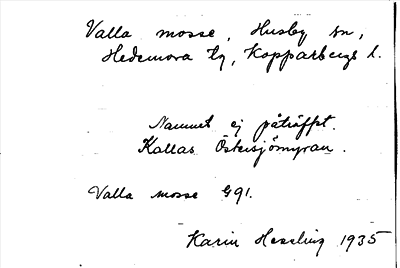 Valla mosse, Husby sn,
Hedemora tg, Kopparbergs l.
Namnet ej påträffat.
Kallas Östersjömyran.
Valla mosse G91.
Karin Hessling 1935